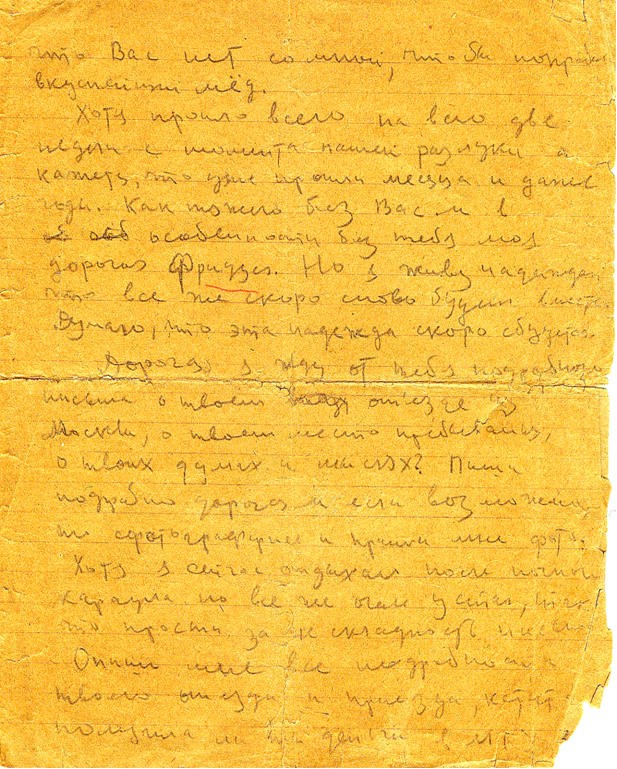 что Вас нет со мной, чтобы попробов
вкуснейший мёд.
Хотя прошло всего на всего две
недели с момента нашей разлуки а
кажется, что уже прошли месяца и даже
годы. Как тяжело без Вас и в
особенности без тебя моя
дорогая Фридзя. Но я живу надеждой
что все же скоро снова будем вместе.
Думаю, что эта надежда скоро сбудется.
Дорогая я жду от тебя подробного
письма о твоем отъезде из
Москвы, о твоем место пребывания,
о твоих думах и мыслях? Пиши
подробно дорогая и если возможно,
то сфотографируйся и пришли мне фото.
Хотя я сейчас отдыхаю после ночного
караула но все же очень устал, так
что прости за не складность письма
Опиши мне все подробности
твоего отъезда и приезда, кстати
получила ли ты деньги в